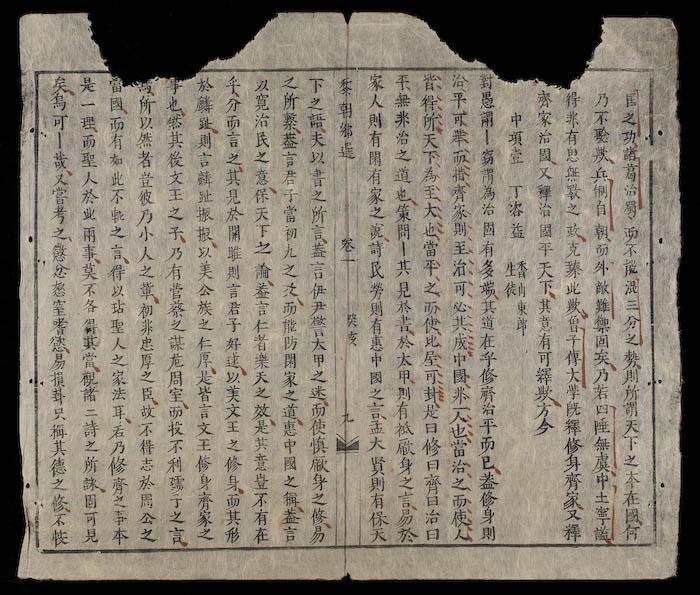 匡之功諸葛治蜀而不能混三分之勢則所謂天下之本在國何
乃不驗歟兵制自朝而外敵難禦固矣乃若四陲無虞中土寧謐
得非有思無斁之政克臻此歟曾子傳大學旣釋修身齊家又釋
齊家治國又釋治國平天下其意有可釋歟方今
中項壹 丁咨益 香山東郎生徒
對愚謂 竊謂爲治固有多端其道在乎修齊治平而已蓋修身則
治平可舉而措齊家則王治可必其成中國非一人也當治之而使人
皆得所天下爲至大也當平之而使比屋可封是曰修曰齊曰治曰
平無非治之道也策問一其見於書於太甲則有祗厥身之言易於
家人則有閑有家之說詩民勞則有惠中國之言孟大賢則有保天
黎朝鄉選 卷一 癸亥 九
下之語夫以書之所言蓋言伊尹營太甲之迷而使愼厥身之修易
之所繫蓋言君子當初九之爻而能防閑家之道惠中國之稱蓋言
以寬治民之意保天下之論蓋言仁者樂天之效是其意豈不有在
乎分而言之其見於關雎則言君子好逑以美文王之修身而其形
於麟趾則言麟趾振振以美公族之仁厚是皆言文王修身齊家之
事也然其後文王之子乃有管蔡之謀危周室而投不利孺子之言
焉所以然者豈彼乃小人之輩初非忠厚之臣故不得志於周公之
當國而有如此不軌之言得以玷聖人之家法耳若乃修齊之事本
是一理而聖人於此兩事莫不各得其當觀諸二詩之所詠固可見
矣焉可一哉又嘗考之懲忿窒嗜慾易損卦只稱其德之修不恢